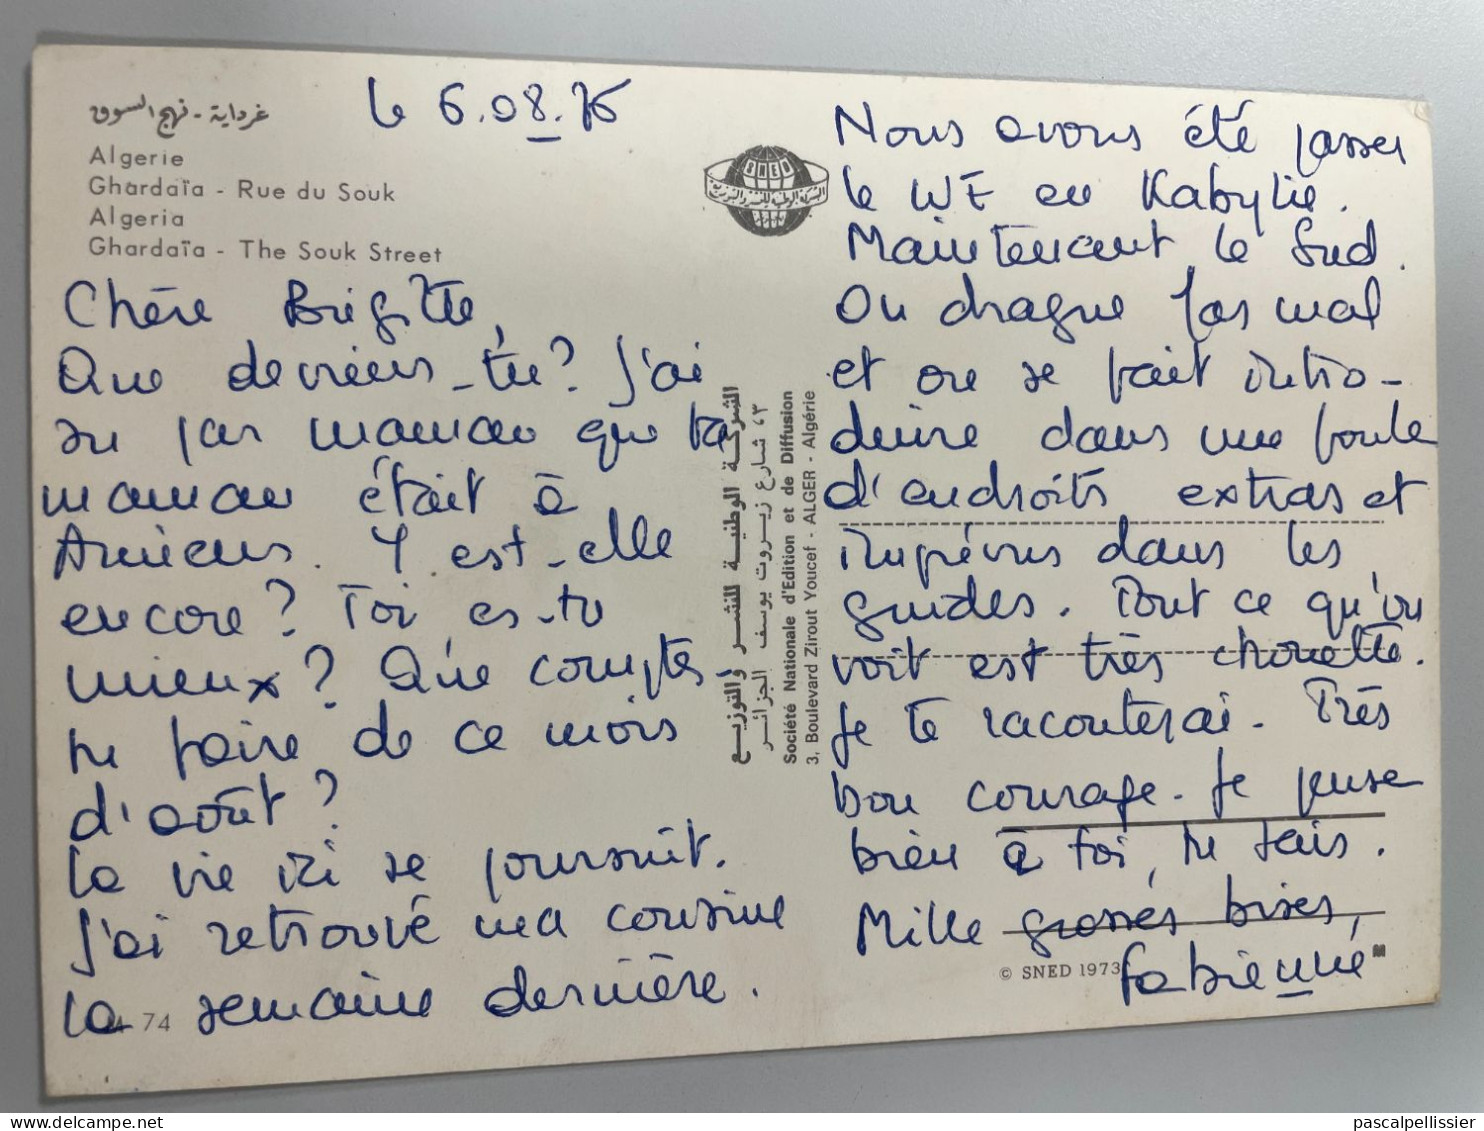 غرداية - نهج السوق
Algerie
Ghardaïa - Rue du Souk
Algeria
Ghardaïa - The Souk Street
le 6.08.76
Chère Brigitte,
Que deviens-tu? J'ai
su par maman que ta
maman était à
Amiens. Y est-elle
encore? Toi es-tu
mieux? Que comptes-
tu faire de ce mois
d'août?
La vie ici se poursuit.
J'ai retrouvé ma cousine
la semaine dernière.
74
SNED
الشركة الوطنية للنشر والتوزيع
٣، شارع زيروت يوسف الجزائر
Société Nationale d'Edition et de Diffusion
3, Boulevard Zirout Youcef - ALGER - Algérie
Nous avons été passer
le WE en Kabylie.
Maintenant le Sud.
On drague pas mal
et on se fait intro-
duire dans une foule
d'endroits extras et
imprévus dans les
guides. Tout ce qu'on
voit est très chouette.
Je te raconterai. Très
bon courage. Je pense
bien à toi, tu sais.
Mille grosses bises,
Fabienne
© SNED 1973
pascalpellissier